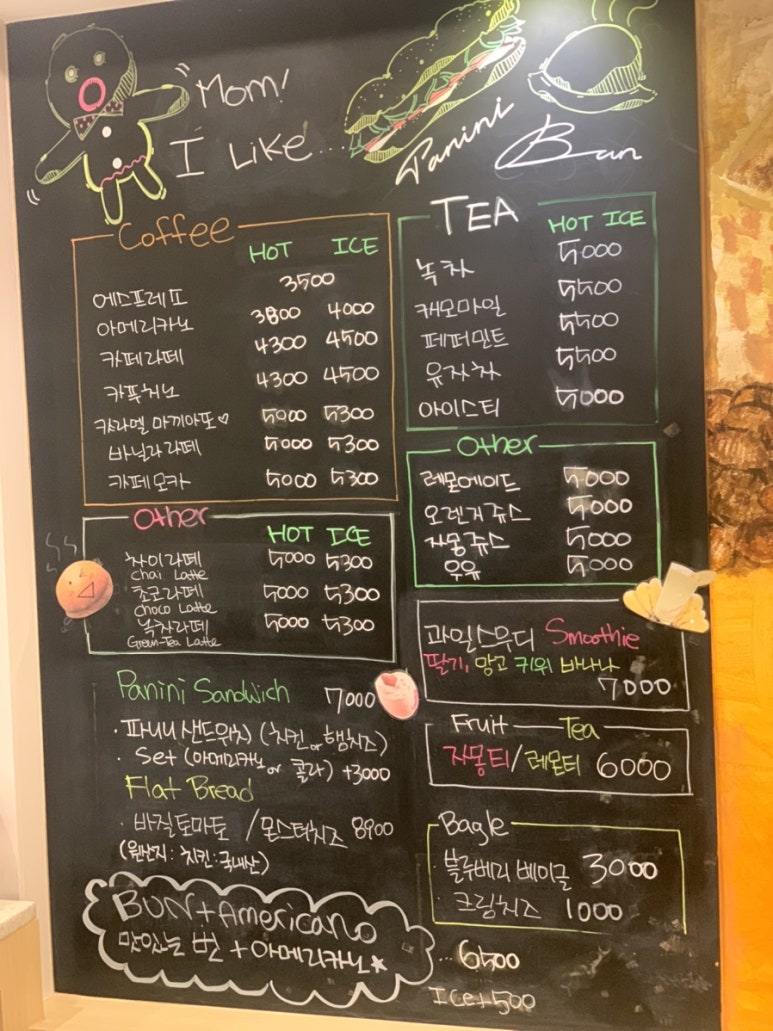 Mom!
I LIKE...
Panini
Bun
Coffee
HOT ICE
에스프레소 3500
아메리카노 3800 4000
카페라떼 4300 4500
카푸치노 4300 4500
카라멜 마끼아또♡ 5000 5300
바닐라라떼 5000 5300
카페모카 5000 5300
Other
HOT ICE
차이라떼 5000 5300
Chai Latte
초코라떼 5000 5300
Choco Latte
녹차라떼 5000 5300
Green-Tea Latte
Panini Sandwich 7000
·파니니샌드위치 (치킨 or 햄치즈)
·Set (아메리카노 or 콜라) +3000
Flat Bread
·바질토마토 / 몬스터치즈 8900
(원산지: 치킨:국내산)
BUN+Americano
맛있는 번 + 아메리카노★
...6500
Ice+500
TEA
HOT ICE
녹차 5000
캐모마일 5500
페퍼민트 5500
유자차 5500
아이스티 5000
Other
레몬에이드 5000
오렌지쥬스 5000
자몽쥬스 5000
우유 5000
과일스무디 Smoothie
딸기, 망고 키위 바나나
7000
Fruit Tea
자몽티/레몬티 6000
Bagle
·블루베리 베이글 3000
·크림치즈 1000